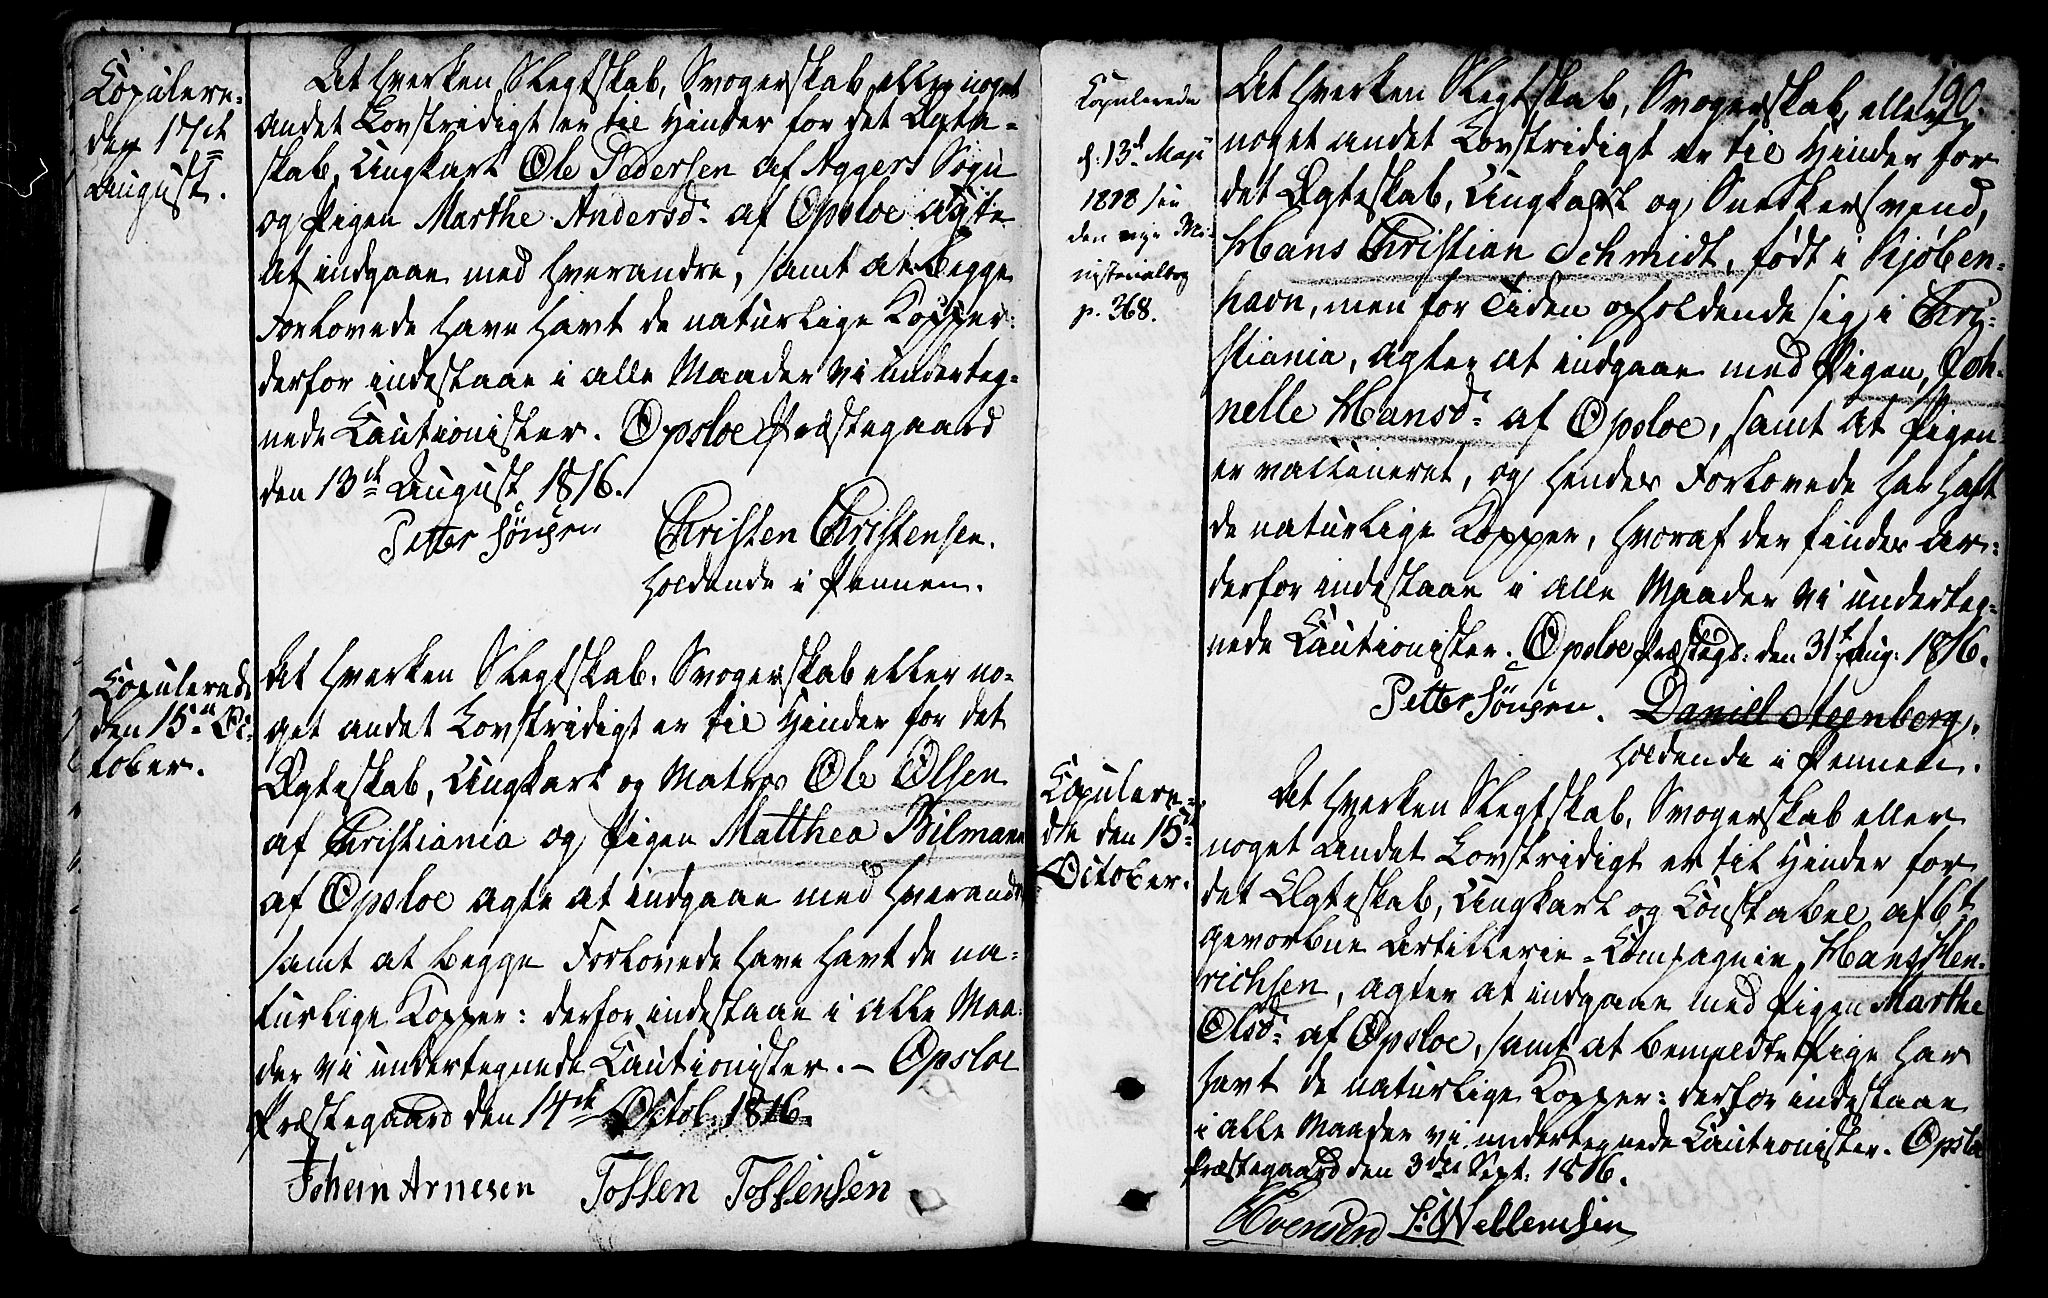 Copulere-
den 17de
August.
At hverken Slegtskab, Svogerskab, eller noget
andet Lovstridigt er til Hinder for det Ægte-
skab, Ungkarl Ole Pedersen af Aggers Sogn
og Pigen Marthe Andersd: af Opsloe agte
at indgaae med hverandre, samt at begge
Forlovede have havt de naturlige Kopper:
derfor indestaae i alle Maader vi underteg-
nede Cautionister. Opsloe Præstegaard
den 13de August 1816.
Petter Jönsen Christen Christensen.
holdende i Pennen.
Copulerede
den 15de Oc-
tober.
At hverken Slegtskab, Svogerskab eller no-
get andet Lovstridigt er til Hinder for det
Ægteskab, Ungkarl og Matros Ole Olsen
af Christiania og Pigen Matthea Bilmann
af Opsloe agte at indgaae med hverandre
samt at begge Forlovede have havt de na-
turlige Kopper: derfor indestaae i alle Maa-
der vi undertegnede Cautionister. – Opsloe
Præstegaard den 14de Octob: 1816.
Johem Arnesen Tossen Tossensen
190.
Kopulerede
d: 13d Maji
1818 see
den nye Mi-
nisterialbog
p. 368.
At hverken Slegtskab, Svogerskab, eller
noget andet Lovstridigt er til Hinder for
det Ægteskab, Ungkarl og Snedkersvend,
Hans Christian Schmidt, født i Kjøben-
havn, men for Tiden opholdende sig i Chri-
stiania, agter at indgaae med Pigen, Joh-
nelle Hansd: af Opsloe, samt at Pigen
er vaccineret, og hendes Forlovede har haft
de naturlige Kopper, hvoraf der findes Ar:
derfor indestaae i alle Maader vi underteg-
nede Cautionister. Opsloe Præstegs: den 31te Aug: 1816.
Petter Jönsen. Daniel Steenberg,
holdende i Pennen.
Copulere-
de den 15de
October.
At hverken Slegtskab, Svogerskab eller
noget Andet Lovstridigt er til Hinder for
det Ægteskab, Ungkarl og Constabel af 6te
gevorbne Artillerie-Compagnie, Hans Hen-
richsen, agter at indgaae med Pigen Marthe
Olsd: af Opsloe, samt at bemeldte Pige har
havt de naturlige Kopper: derfor indestaae
i alle Maader vi undertegnede Cautionister. Opsloe
Præstegaard den 3die Sept: 1816.
L: Wellemsen